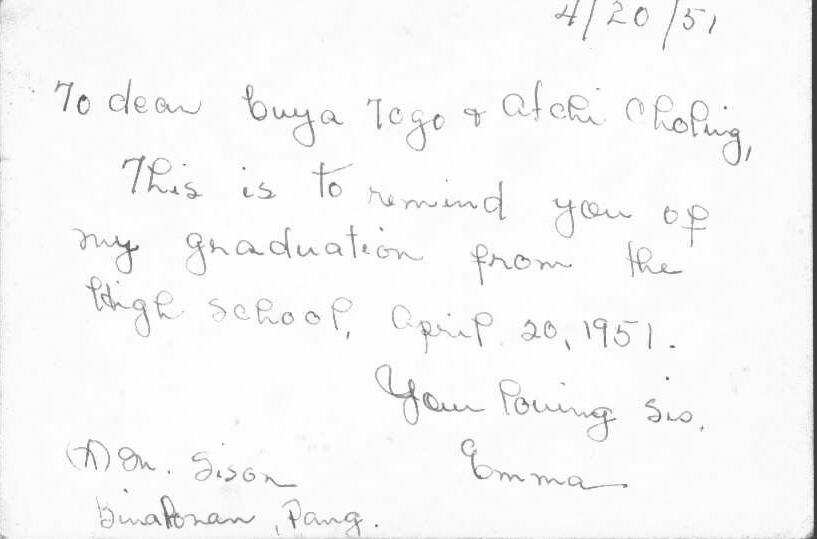 4/20/51
To dear Cuya Togo & Atchi Choling,
This is to remind you of
my graduation from the
High School, April 20, 1951.
Your loving sis,
Emma
Sison
Binalonan, Pang.